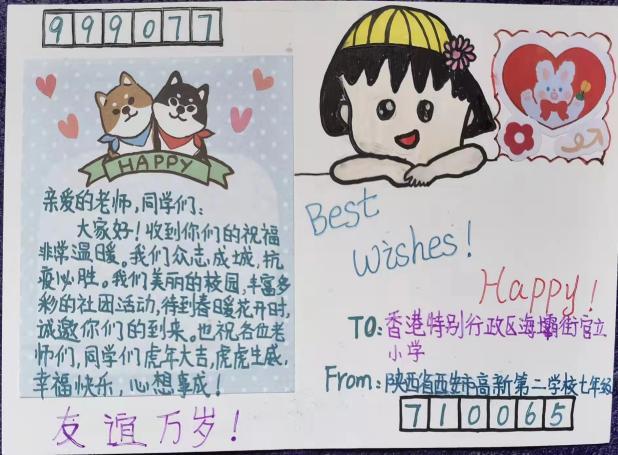 999077
HAPPY
亲爱的老师,同学们:
大家好!收到你们的祝福
非常温暖。我们众志成城,抗
疫必胜。我们美丽的校园,丰富多
彩的社团活动,待到春暖花开时,
诚邀你们的到来。也祝各位老
师们,同学们虎年大吉,虎虎生威,
幸福快乐,心想事成!
友谊万岁!
Best
wishes!
Happy!
TO:香港特别行政区海坝街官立
小学
From:陕西省西安市高新第二学校七年级
710065